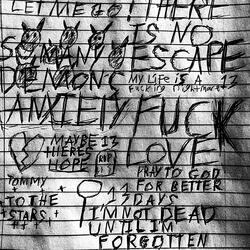 LET ME GO! THERE
IS NO
SO MANY ESCAPE
DEMONS
MY LIFE IS A
FUCKING NIGHTMARE
ANXIETY FUCK
MAYBE
THERES
HOPE
RIP
LOVE
TOMMY
TO THE
STARS
PRAY TO GOD
FOR BETTER
DAYS
I'M NOT DEAD
UNTIL IM
FORGOTTEN